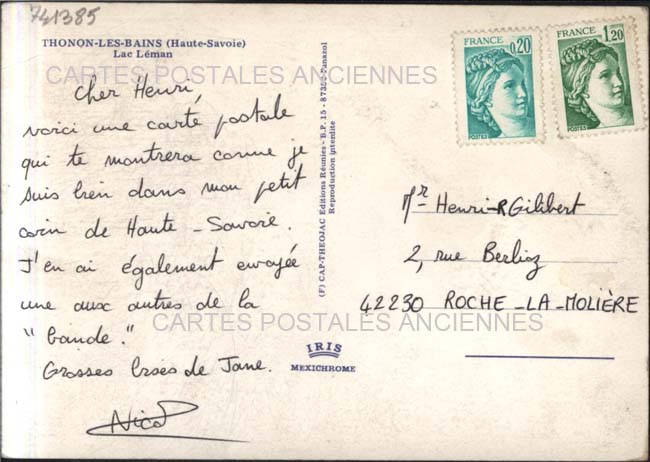 741385
THONON-LES-BAINS (Haute-Savoie)
Lac Léman
CARTES POSTALES ANCIENNES
Cher Henri,
voici une carte postale
qui te montrera comme je
suis bien dans mon petit
coin de Haute-Savoie.
J'en ai également envoyée
une aux autres de la
"bande".
Grosses bises de Jane.
Nico
(F) CAP-THEOJAC Editions Réunies - B.P. 15 - 87350 Panazol
Reproduction interdite
IRIS
MEXICHROME
FRANCE
0,20
POSTES
FRANCE
1,20
POSTES
Mr Henri-R Gilibert
2, rue Berlioz
42230 ROCHE-LA-MOLIÈRE
CARTES POSTALES ANCIENNES